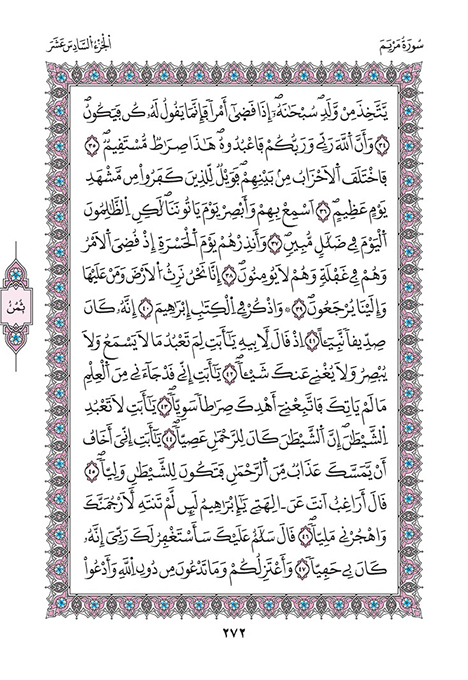 سُورَةُ مَرْيَمَ
اَلْجُزْءُ السَّادِسَ عَشَرَ
يَّتَّخِذَ مِنْ وَّلَدٖ سُبْحَٰنَهُۥٓ إِذَا قَضَىٰٓ أَمْراٗ فَإِنَّمَا يَقُولُ لَهُۥ كُن فَيَكُونُ
٣٤ وَأَنَّ اَ۬للَّهَ رَبِّے وَرَبُّكُمْ فَاعْبُدُوهُ هَٰذَا صِرَٰطٞ مُّسْتَقِيمٞ ٣٥
فَاخْتَلَفَ اَ۬لَاحْزَابُ مِنۢ بَيْنِهِمْ فَوَيْلٞ لِّلذِينَ كَفَرُواْ مِن مَّشْهَدِ
يَوْمٍ عَظِيمٍ ٣٦ اَسْمِعْ بِهِمْ وَأَبْصِرْ يَوْمَ يَاتُونَنَا لَٰكِنِ اِ۬لظَّٰلِمُونَ
اَ۬لْيَوْمَ فِے ضَلَٰلٖ مُّبِينٖ ٣٧ وَأَنذِرْهُمْ يَوْمَ اَ۬لْحَسْرَةِ إِذْ قُضِيَ اَ۬لَامْرُ
وَهُمْ فِے غَفْلَةٖ وَهُمْ لَا يُومِنُونَ ٣٨ إِنَّا نَحْنُ نَرِثُ اُ۬لَارْضَ وَمَنْ عَلَيْهَا
وَإِلَيْنَا يُرْجَعُونَ ٣٩ ۞ وَاذْكُرْ فِے اِ۬لْكِتَٰبِ إِبْرَٰهِيمَ ٤٠ إِنَّهُۥ كَانَ
صِدِّيقاٗ نَّبِيٓـٔاً ٤١ اِذْ قَالَ لِأَبِيهِ يَٰٓأَبَتِ لِمَ تَعْبُدُ مَا لَا يَسْمَعُ وَلَا
يُبْصِرُ وَلَا يُغْنِے عَنكَ شَيْـٔاٗ ٤٢ يَٰٓأَبَتِ إِنِّے قَدْ جَآءَنِے مِنَ اَ۬لْعِلْمِ
مَا لَمْ يَاتِكَ فَاتَّبِعْنِےٓ أَهْدِكَ صِرَٰطاٗ سَوِيّاٗ ٤٣ يَٰٓأَبَتِ لَا تَعْبُدِ
اِ۬لشَّيْطَٰنَ إِنَّ اَ۬لشَّيْطَٰنَ كَانَ لِلرَّحْمَٰنِ عَصِيّاٗ ٤٤ يَٰٓأَبَتِ إِنِّيَ أَخَافُ
أَنْ يَّمَسَّكَ عَذَابٞ مِّنَ اَ۬لرَّحْمَٰنِ فَتَكُونَ لِلشَّيْطَٰنِ وَلِيّاٗ ٤٥
قَالَ أَرَاغِبٌ اَنتَ عَنَ اٰلِهَتِے يَٰٓإِبْرَٰهِيمُ لَئِن لَّمْ تَنتَهِ لَأَرْجُمَنَّكَ
وَاهْجُرْنِے مَلِيّاٗ ٤٦ قَالَ سَلَٰمٌ عَلَيْكَ سَأَسْتَغْفِرُ لَكَ رَبِّيَ إِنَّهُۥ
كَانَ بِے حَفِيّاٗ ٤٧ وَأَعْتَزِلُكُمْ وَمَا تَدْعُونَ مِن دُونِ اِ۬للَّهِ وَأَدْعُواْ
ثُمُنْ
٢٧٢